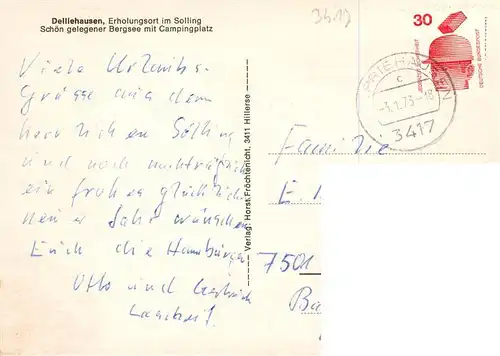 Delliehausen, Erholungsort im Solling
Schön gelegener Bergsee mit Campingplatz
3419
30
DEUTSCHE BUNDESPOST
c
-3.1.73-18
3417
Viele Urlaubs-
grüsse aus dem
herrlichen Solling
und noch nachträglich
ein frohes glückliches
neues Jahr wünschen
Euch die Hamburger
Otto und
Verlag: Horst Fröchtenicht, 3411 Hillerse
Familie
E.
7501
Ba